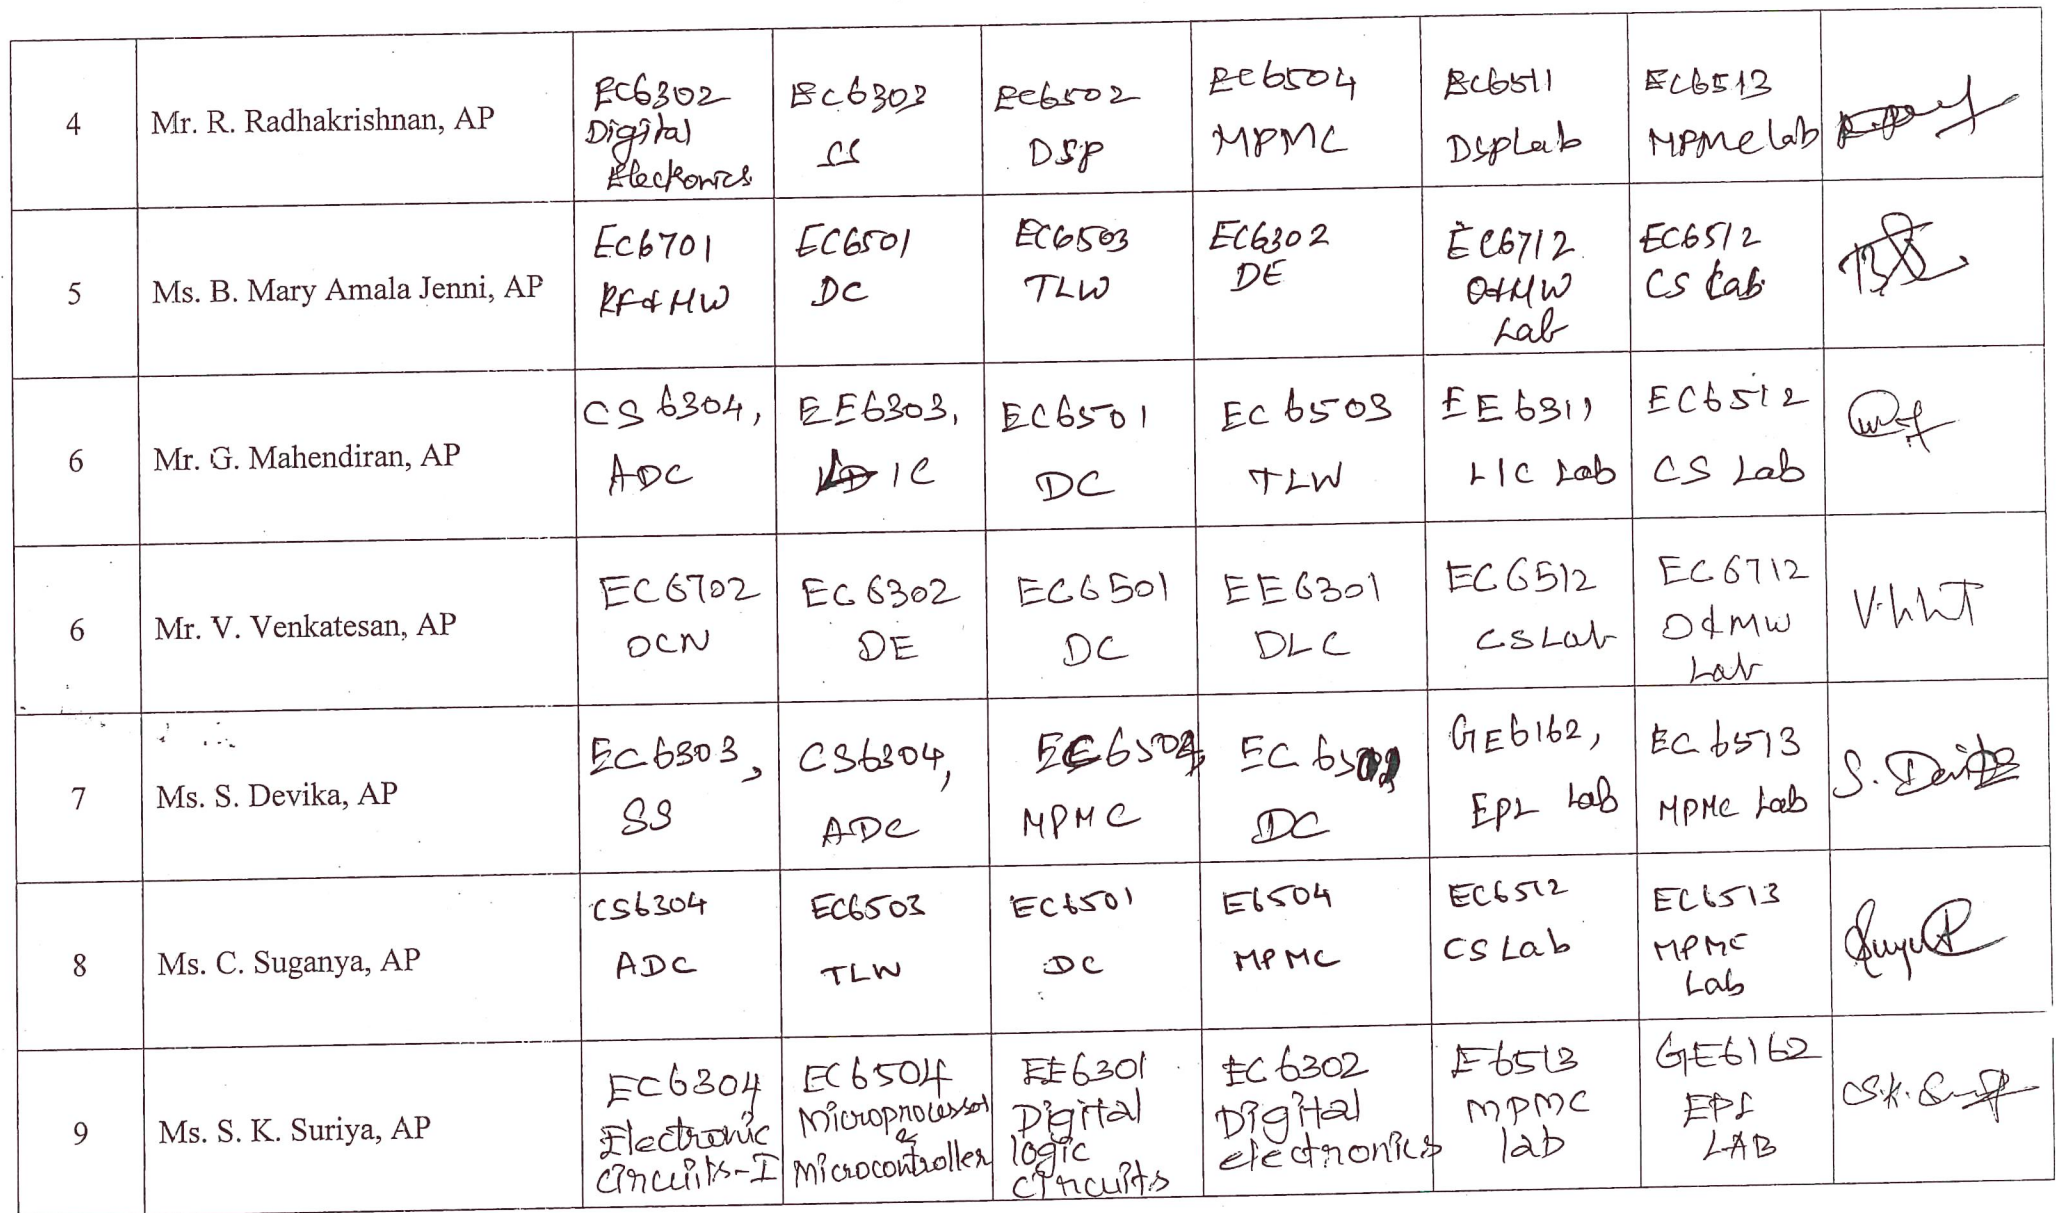 4
Mr. R. Radhakrishnan, AP
EC6302
Digital
Electronics
EC6303
SS
EC6502
DSP
EC6504
MPMC
EC6511
DSPLab
EC6513
MPMC lab
5
Ms. B. Mary Amala Jenni, AP
EC6701
RF&MW
EC6501
DC
EC6503
TLW
EC6302
DE
EC6712
O&MW
Lab
EC6512
CS Lab
6
Mr. G. Mahendiran, AP
CS6304,
ADC
EE6303,
IC
EC6501
DC
EC6503
TLW
EE6311
LIC Lab
EC6512
CS Lab
6
Mr. V. Venkatesan, AP
EC6702
OCN
EC6302
DE
EC6501
DC
EE6301
DLC
EC6512
CS Lab
EC6712
O&MW
Lab
7
Ms. S. Devika, AP
EC6303,
SS
CS6304,
ADC
EC6504
MPMC
DC
GE6162,
EPL Lab
EC6513
MPMC Lab
S. Devika
8
Ms. C. Suganya, AP
CS6304
ADC
EC6503
TLW
EC6501
DC
E6504
MPMC
EC6512
CS Lab
EC6513
MPMC
Lab
9
Ms. S. K. Suriya, AP
EC6304
Electronic
circuits-I
EC6504
Microprocessor
&
Microcontroller
EE6301
Digital
logic
circuits
EC6302
Digital
electronics
E6513
MPMC
lab
GE6162
EPL
LAB